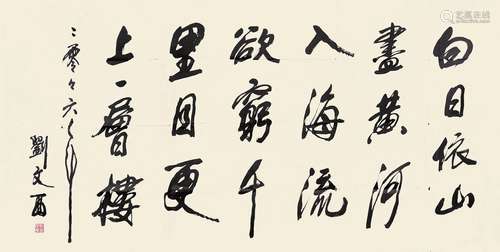 白日依山
盡黄河
入海流
欲窮千
里目更
上一層樓
二零々六年
劉文西